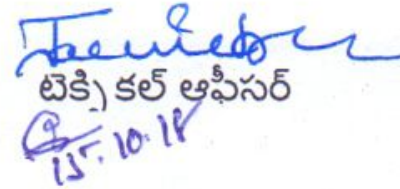 టెక్ని కల్ ఆఫీసర్
15.10.18